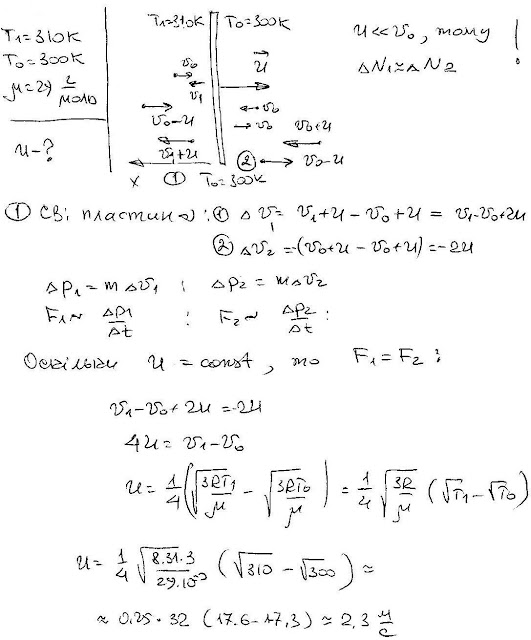 T₁=310K
T₀=300K
μ=29 г/моль
u-?
T₁=310K | T₀=300K
v₀
v₁
v₀-u
v₁+u
x ① T₀=300K
u
v₀
v₀
v₀+u
② v₀-u
u<<v₀, тому
ΔN₁≈ΔN₂ !
① Св: пластини: ① Δv₁= v₁+u-v₀+u = v₁-v₀+2u
② Δv₂ =-(v₀+u-v₀+u)=-2u
Δp₁=mΔv₁ ; Δp₂=mΔv₂
F₁~ Δp₁/Δt ; F₂~ Δp₂/Δt :
Оскільки u=const, то F₁=F₂ :
v₁-v₀+2u=-2u
4u= v₁-v₀
u= 1/4 (√(3RT₁/μ) - √(3RT₀/μ)) = 1/4 √(3R/μ) (√T₁-√T₀)
u= 1/4 √(8.31·3/29·10⁻³) (√310-√300) ≈
≈ 0,25·32 (17.6-17,3) ≈ 2,3 м/с